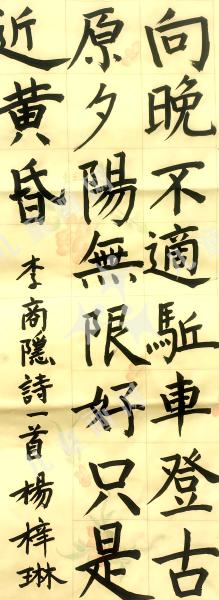 向晚不適駈車登古
原夕陽無限好只是
近黄昏
李商隱詩一首楊梓琳